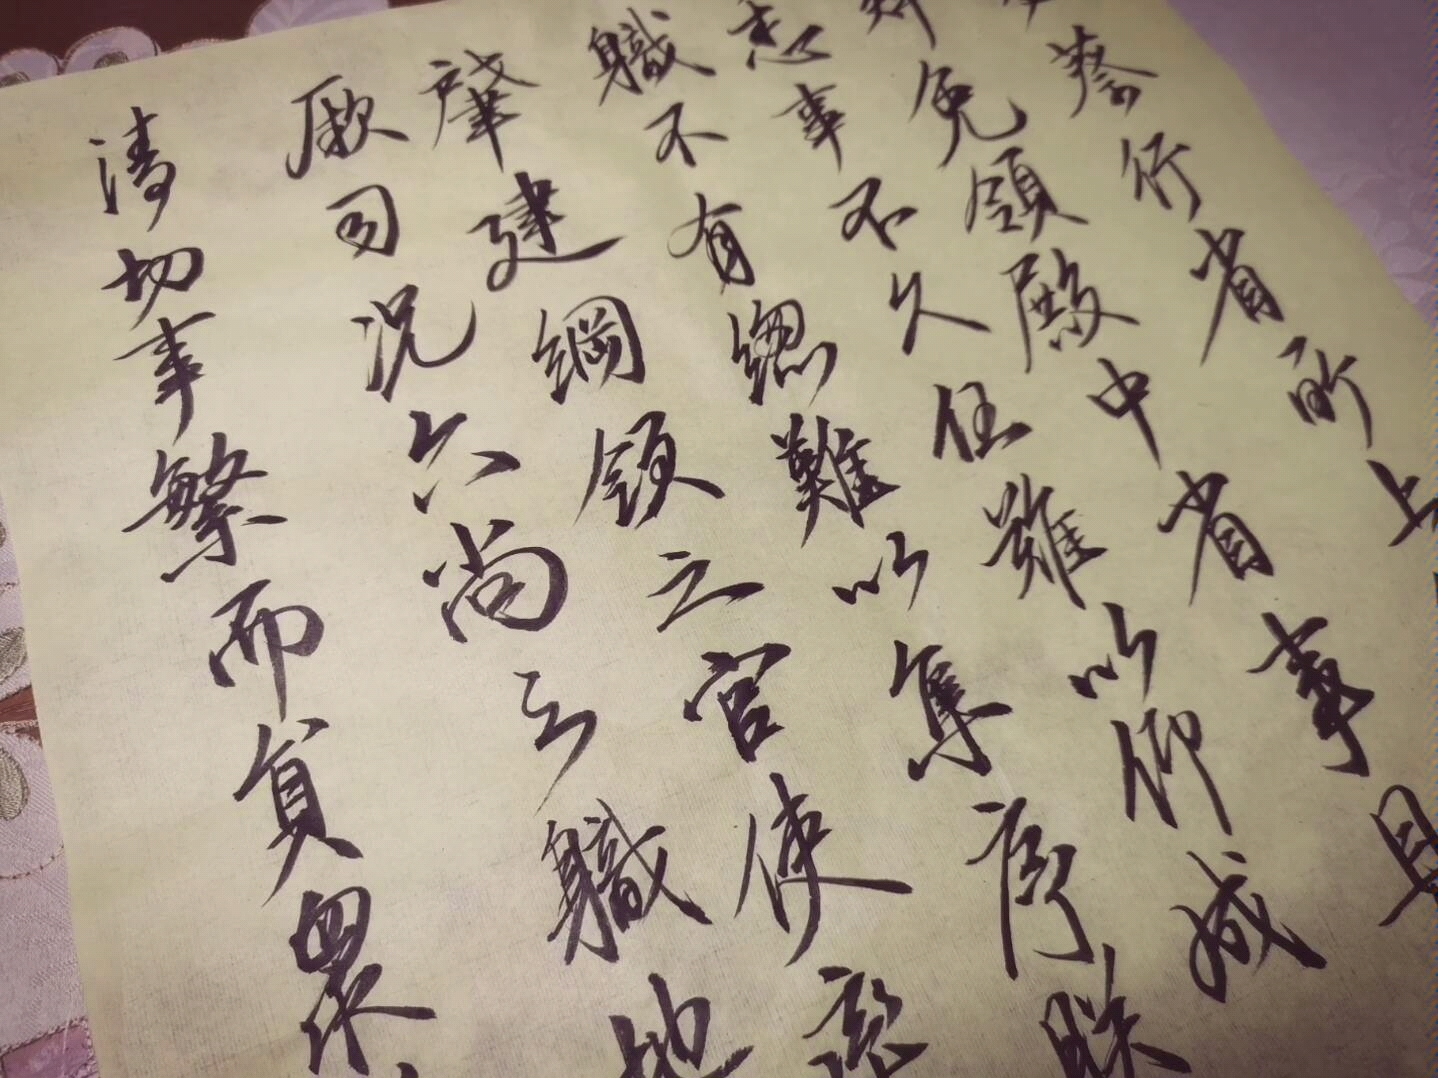 蔡行省所上
免領殿中省事具
悉事不久任難以仰成
職不有總難以集序朕
肇建綱領之官使
厥司況六尚之職地
清切事繁而員衆